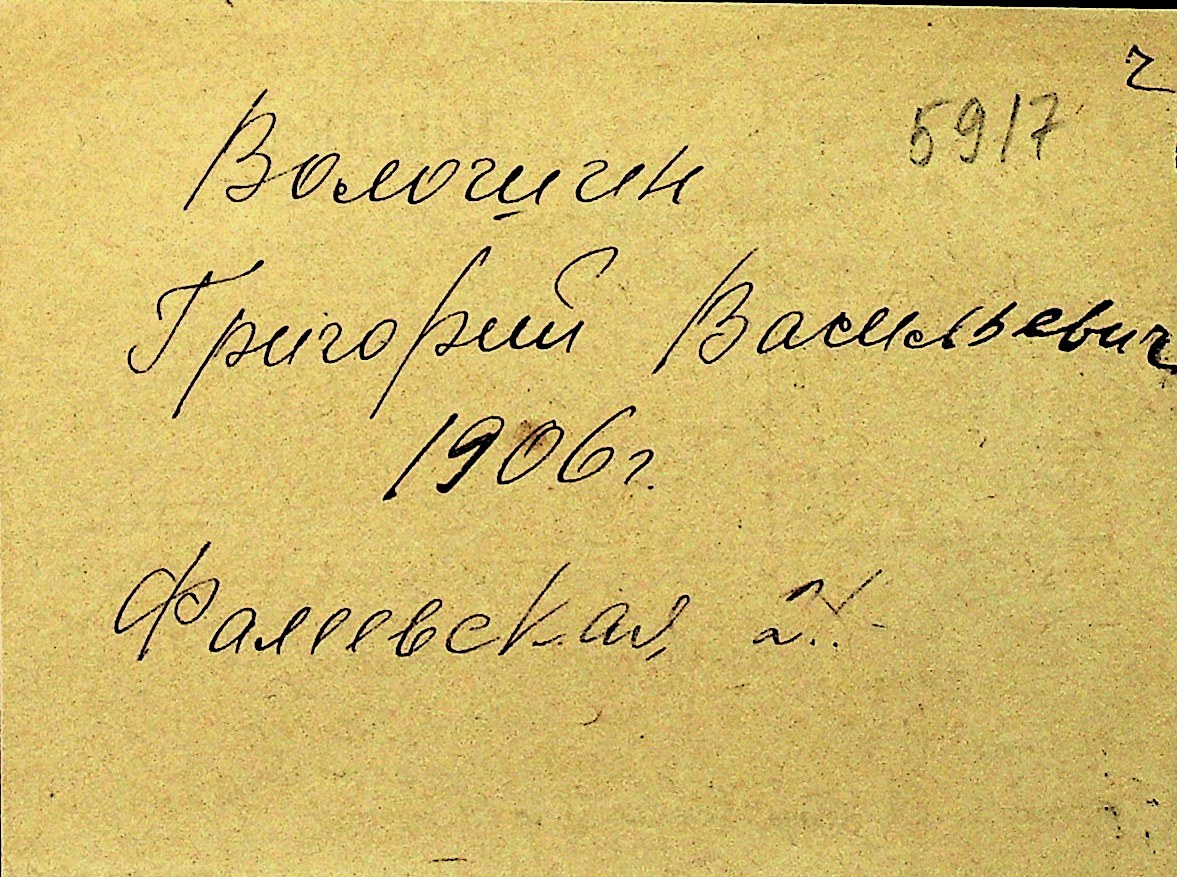 5917
Волошин
Григорий Васильевич
1906г.
Фалеевская,